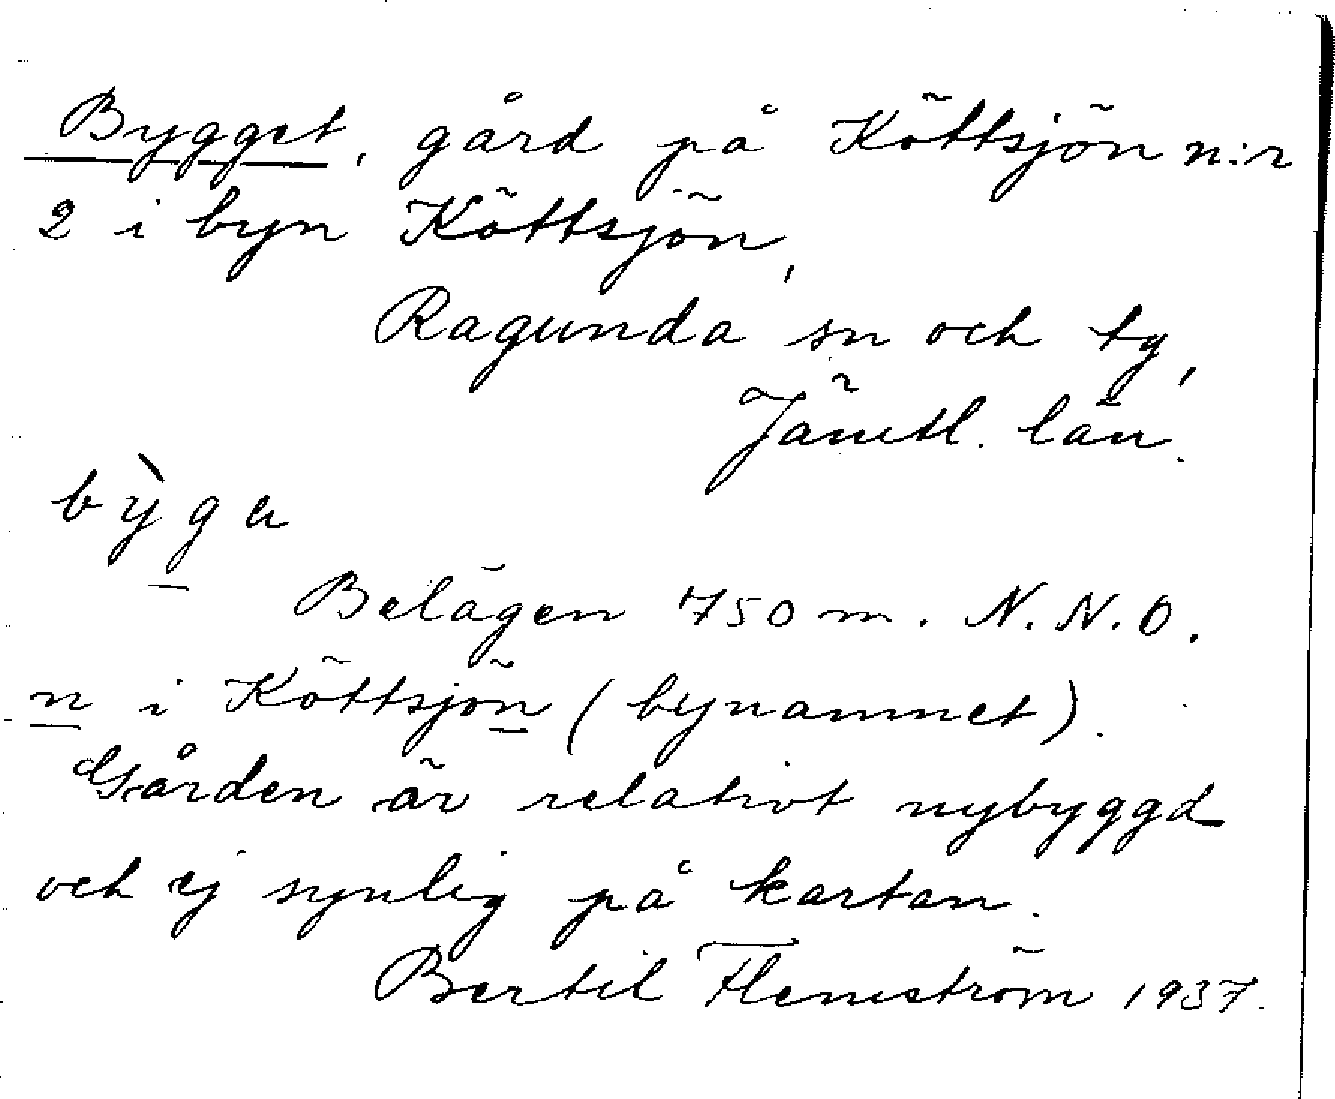 Bygget, gård på Köttsjön n:r
2 i byn Köttsjön,
Ragunda sn och tg,
Jämtl. län.
bỳga
Belägen 750 m. N.N.O.
n i Köttsjön (bynamnet).
Gården är relativt nybyggd
och ej synlig på kartan.
Bertil Flemström 1937.